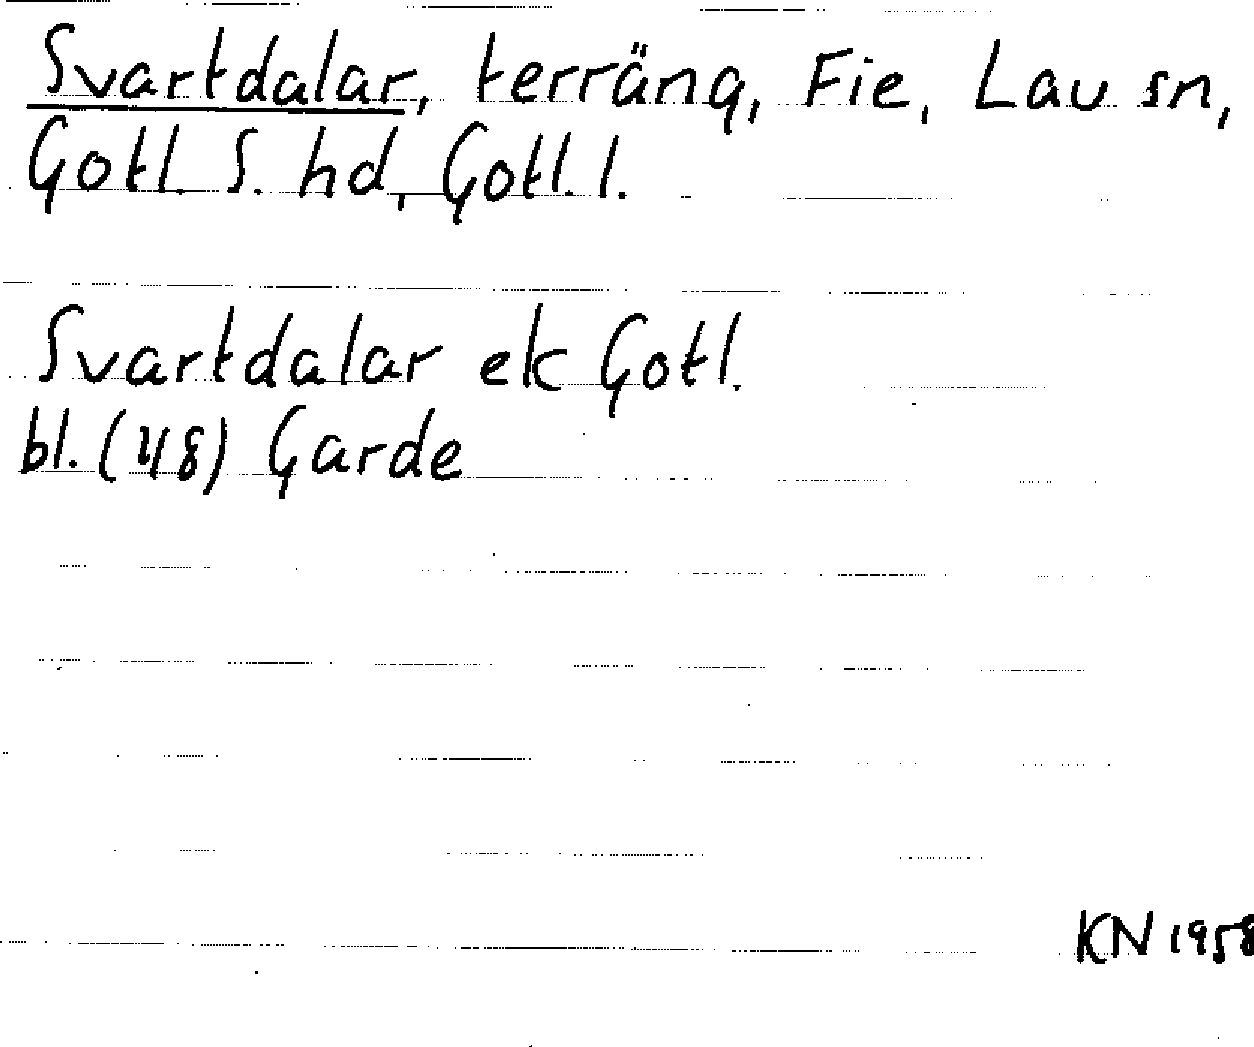 Svartdalar, terräng, Fie, Lau sn,
Gotl. S. hd, Gotl. l.
Svartdalar ek Gotl.
bl. (48) Garde
KN 1958